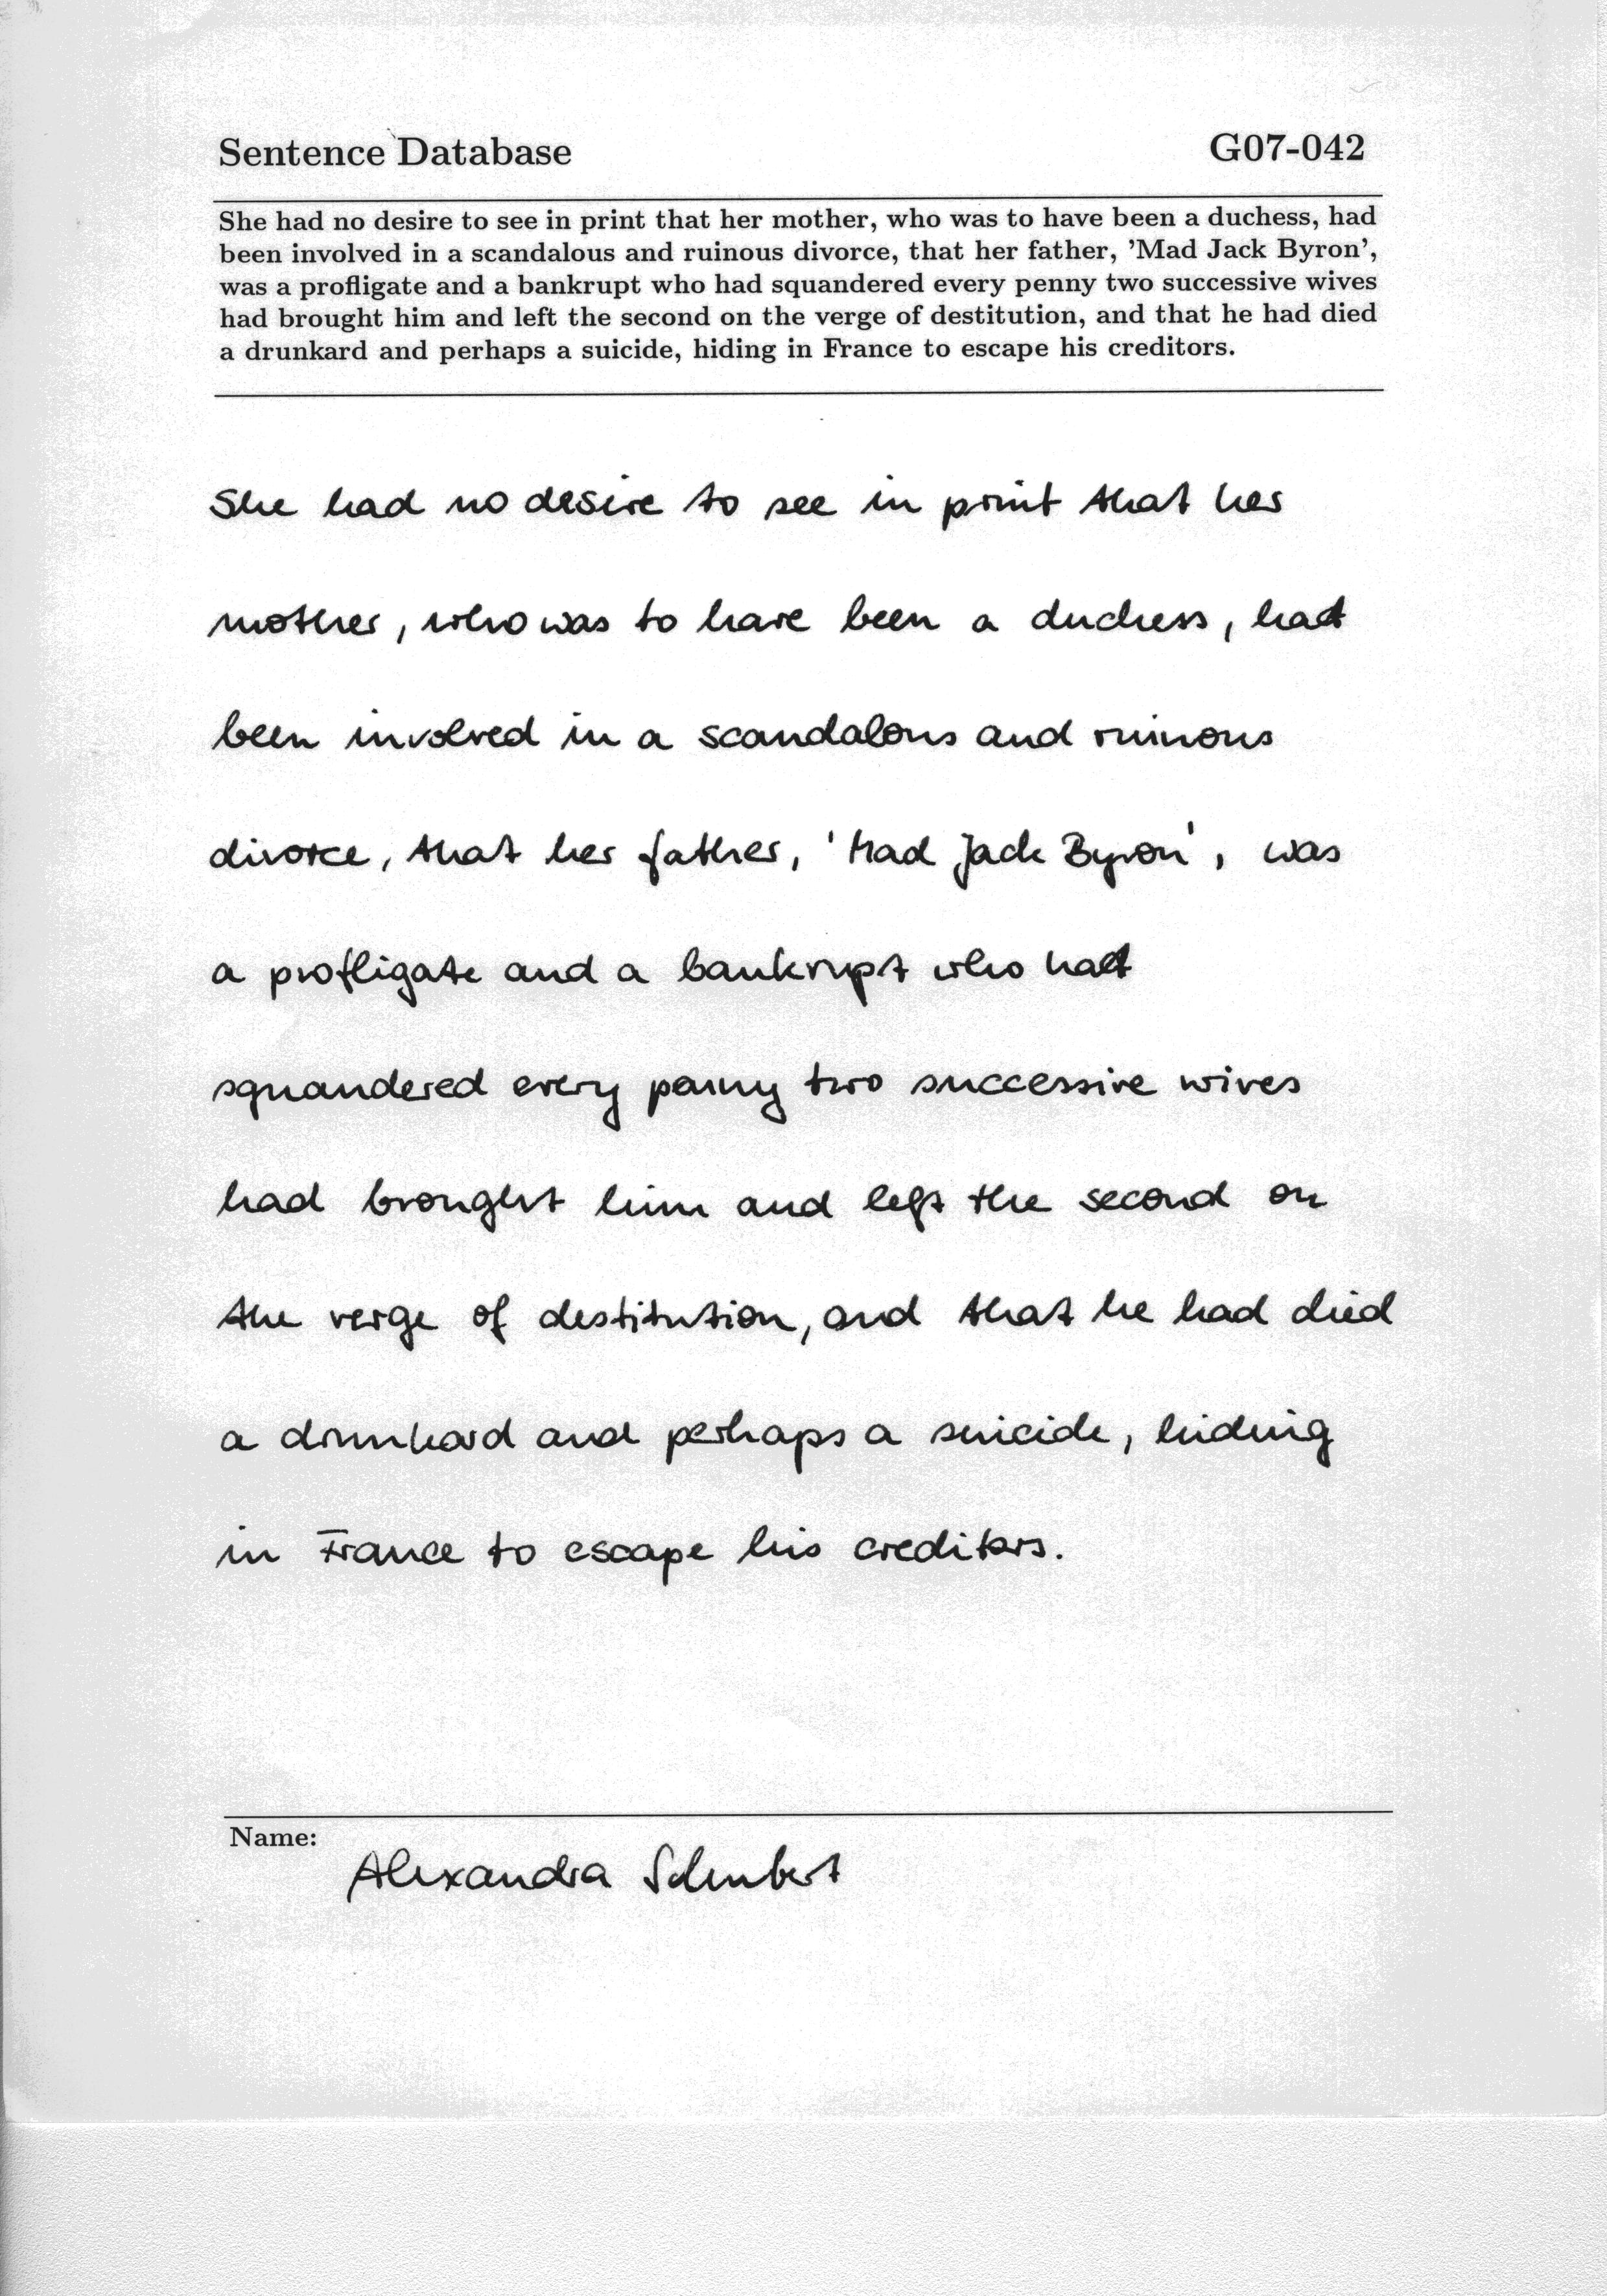 Sentence Database G07-042
She had no desire to see in print that her mother, who was to have been a duchess, had
been involved in a scandalous and ruinous divorce, that her father, 'Mad Jack Byron',
was a profligate and a bankrupt who had squandered every penny two successive wives
had brought him and left the second on the verge of destitution, and that he had died
a drunkard and perhaps a suicide, hiding in France to escape his creditors.
She had no desire to see in print that her
mother, who was to have been a duchess, had
been involved in a scandalous and ruinous
divorce, that her father, 'Mad Jack Byron', was
a profligate and a bankrupt who had
squandered every penny two successive wives
had brought him and left the second on
the verge of destitution, and that he had died
a drunkard and perhaps a suicide, hiding
in France to escape his creditors.
Name:
Alexandra Schubert